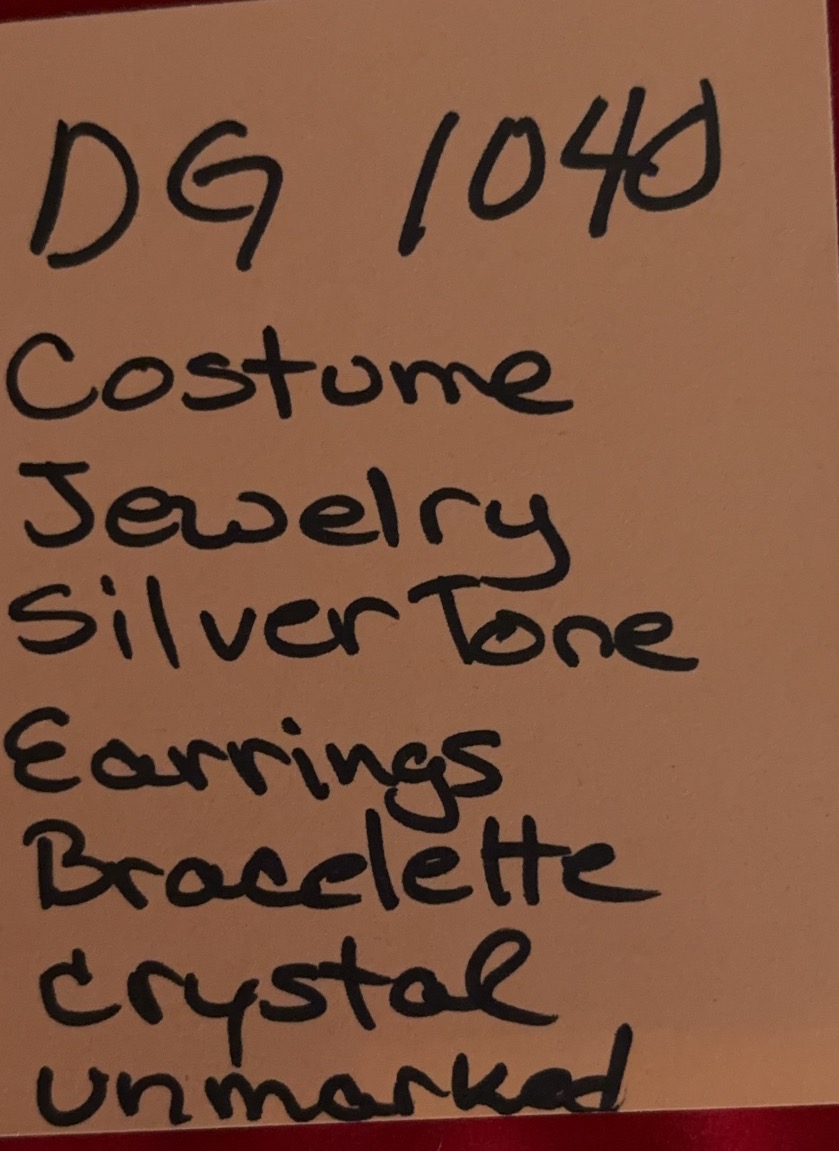 DG 1040
Costume
Jewelry
Silver Tone
Earrings
Bracelette
Crystal
unmarked